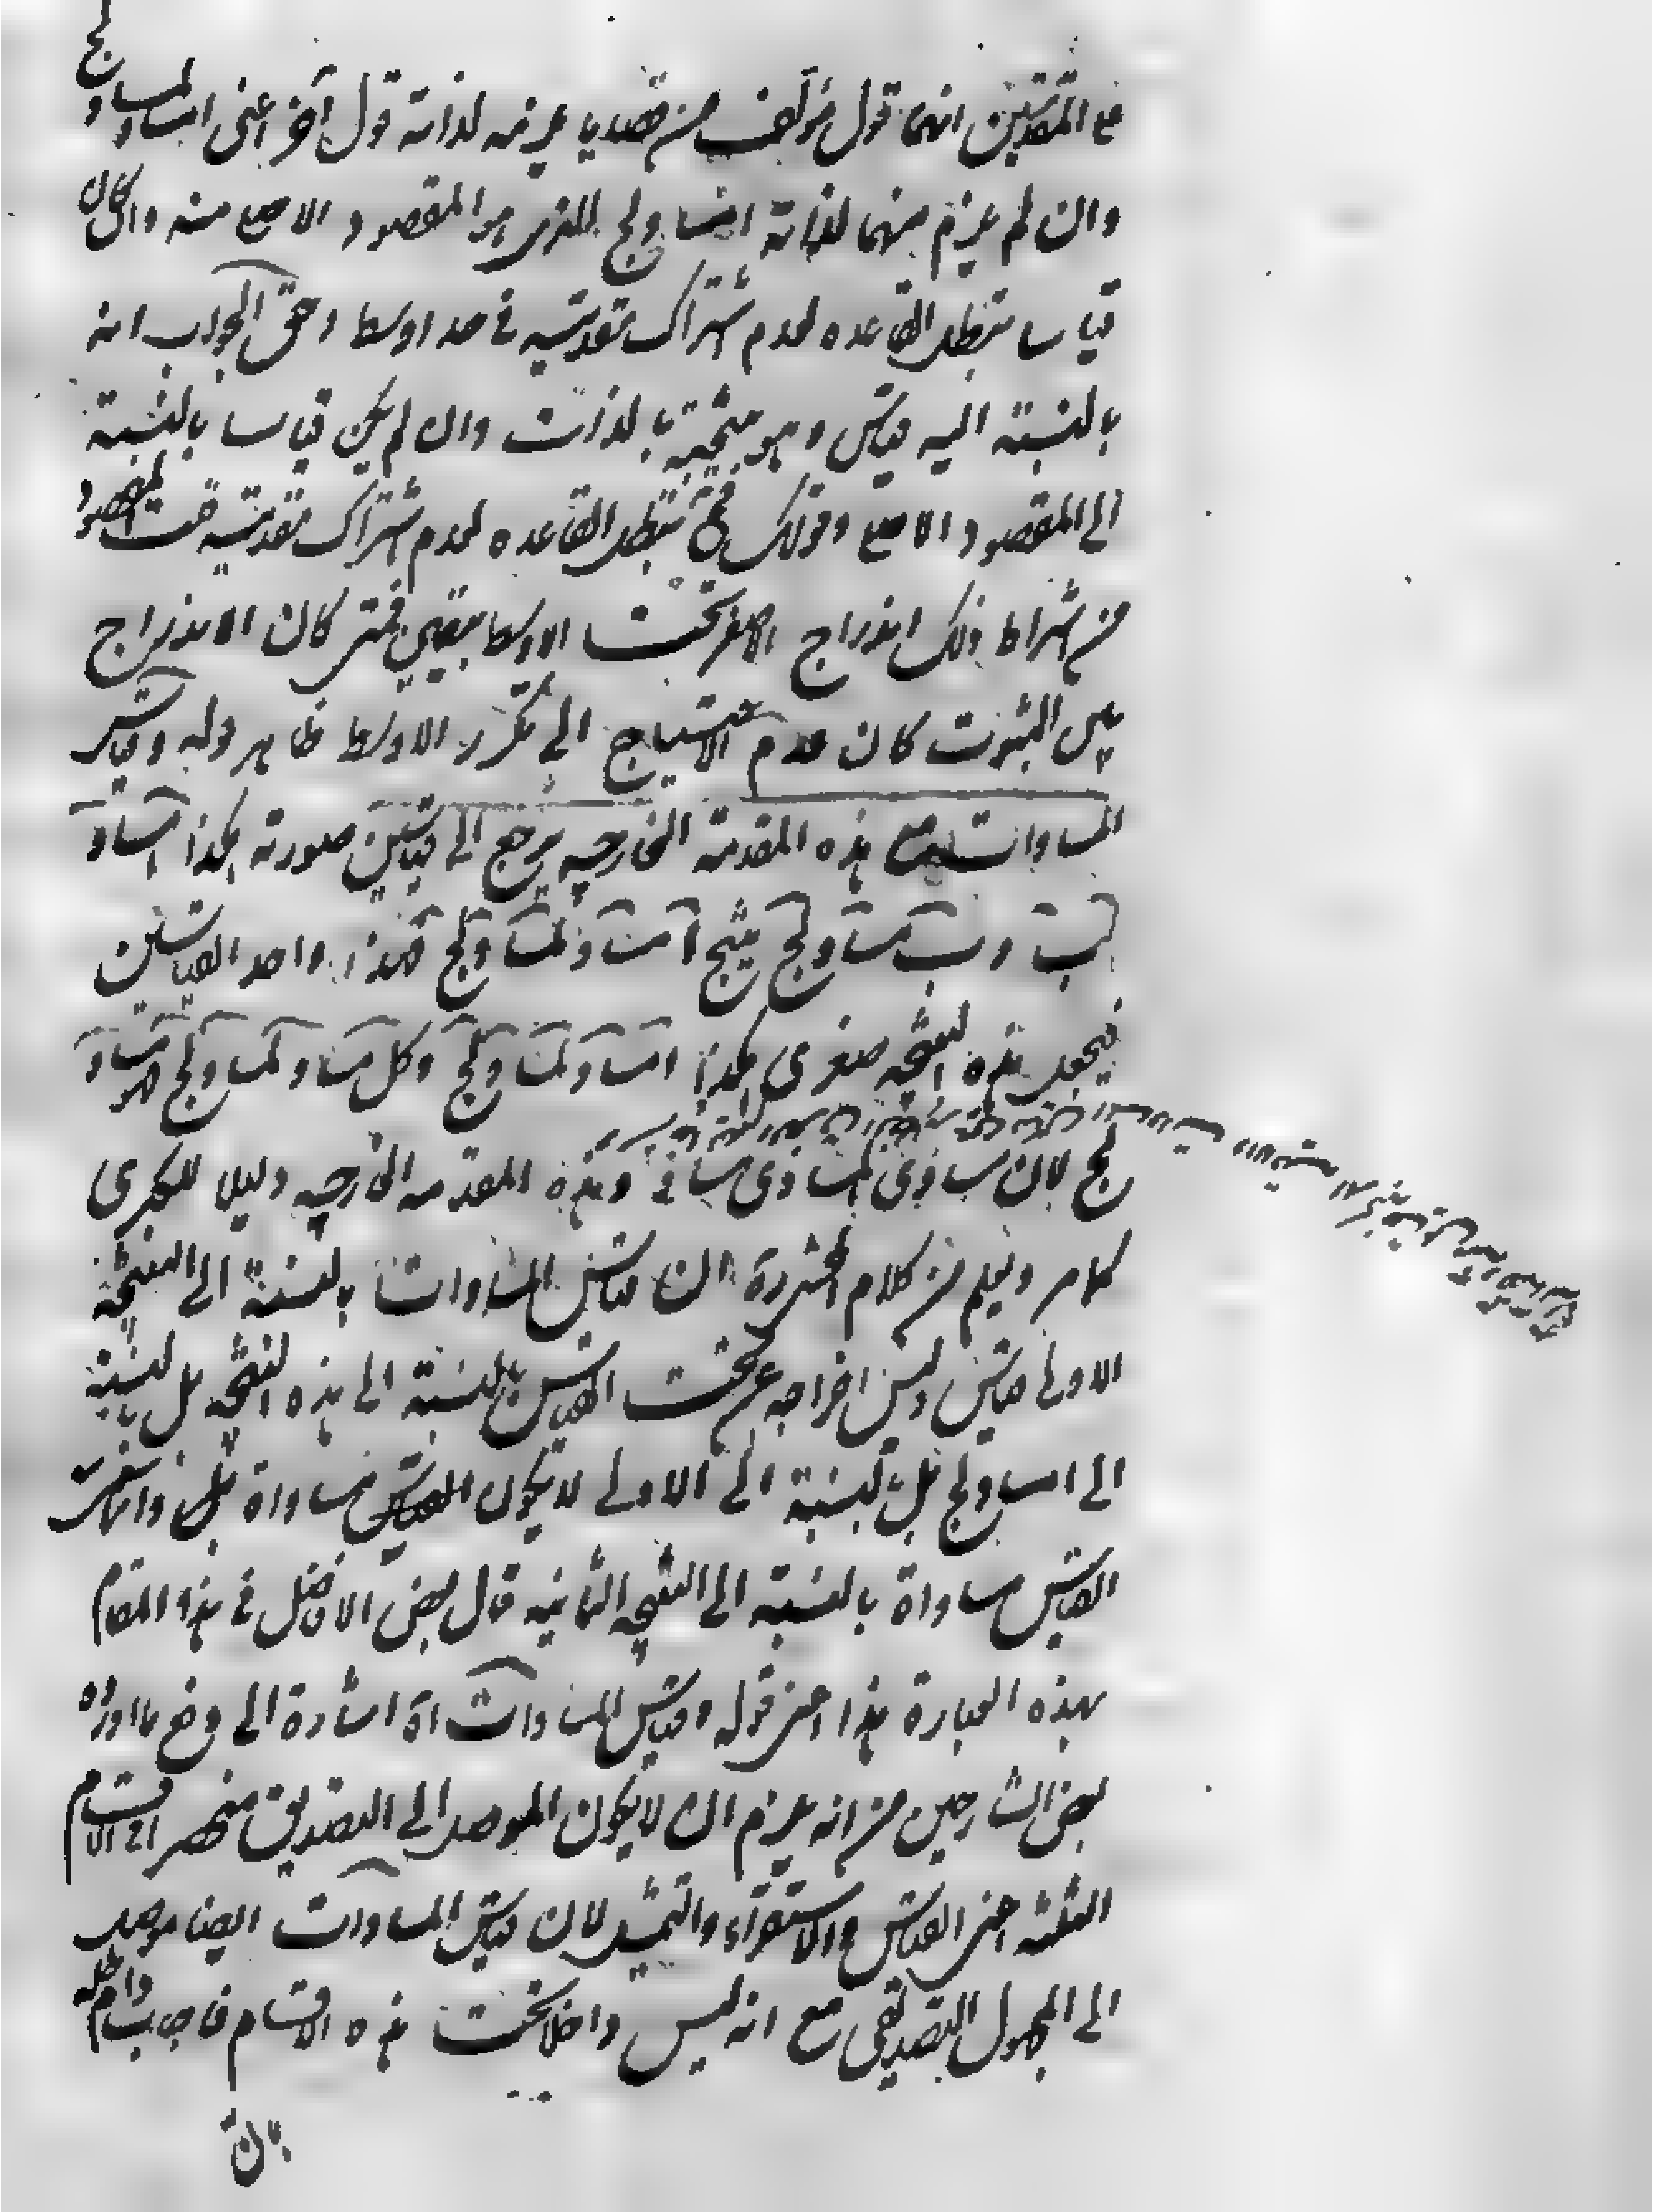 مع المقدمتين انهما قول مؤلف من قضايا يلزمه لذاته قول آخر اعنى ا مساو لمساو لج
وان لم يلزم منهما لذاته ا مساو لج الذى هو المقصود الاصلى منه وان كان
قياسا تبطل القاعده لعدم اشتراك مقدمتيه فى حد اوسط وحق الجواب انه
بالنسبته اليه قياس وهو نتيجته بالذات وان لم يكن قياسا بالنسبته
الى المقصود الاصلى وقولك فح تبطل القاعده لعدم اشتراك مقدمتيه قلت المقصود
من اشتراط ذلك اندراج الاصغر تحت الاوسط بيقين فمتى كان الاندراج
بين الثبوت كان عدم الاحتياج الى تكرر الاوسط ظاهر قوله وقياس
المساوات مع هذه المقدمة الخارجيه يرجع الى قياسين صورته هكذا ا مساو
لب وب مساو لج ينتج ا مساو لمساو لج فهذا واحد القياسين
فيجعل هذه النتيجه صغرى هكذا ا مساو لمساو لج وكل مساو لمساو لج فهو مساو
لج لان مساوى المساوى مساو وهذه المقدمه الخارجيه دليلا للكبرى
كما مر ويعلم من كلام المحشى ان قياس المساوات بالنسبة الى النتيجة
الاولى قياس وليس اخراجه عن تحت القياس بالنسبته الى هذه النتيجه بل بالنسبة
الى ا مساو لج بل بالنسبة الى الاولى لا يكون القياس مساواة بل
القياس مساواة بالنسبته الى النتيجه الثانيه قال بعض الافاضل فى هذا المقام
بهذه العبارة هذا اعنى قوله وقياس المساوات اه اشارة الى دفع ما اورده
بعض الشارحين من انه يلزم ان لا يكون الموصل الى التصديق منحصرا فى الاقسام
الثلثه اعنى القياس والاستقراء والتمثيل لان قياس المساوات ايضا موصل
الى المجهول التصديقى مع انه ليس داخلا تحت هذه الاقسام فاجاب داخله
بان